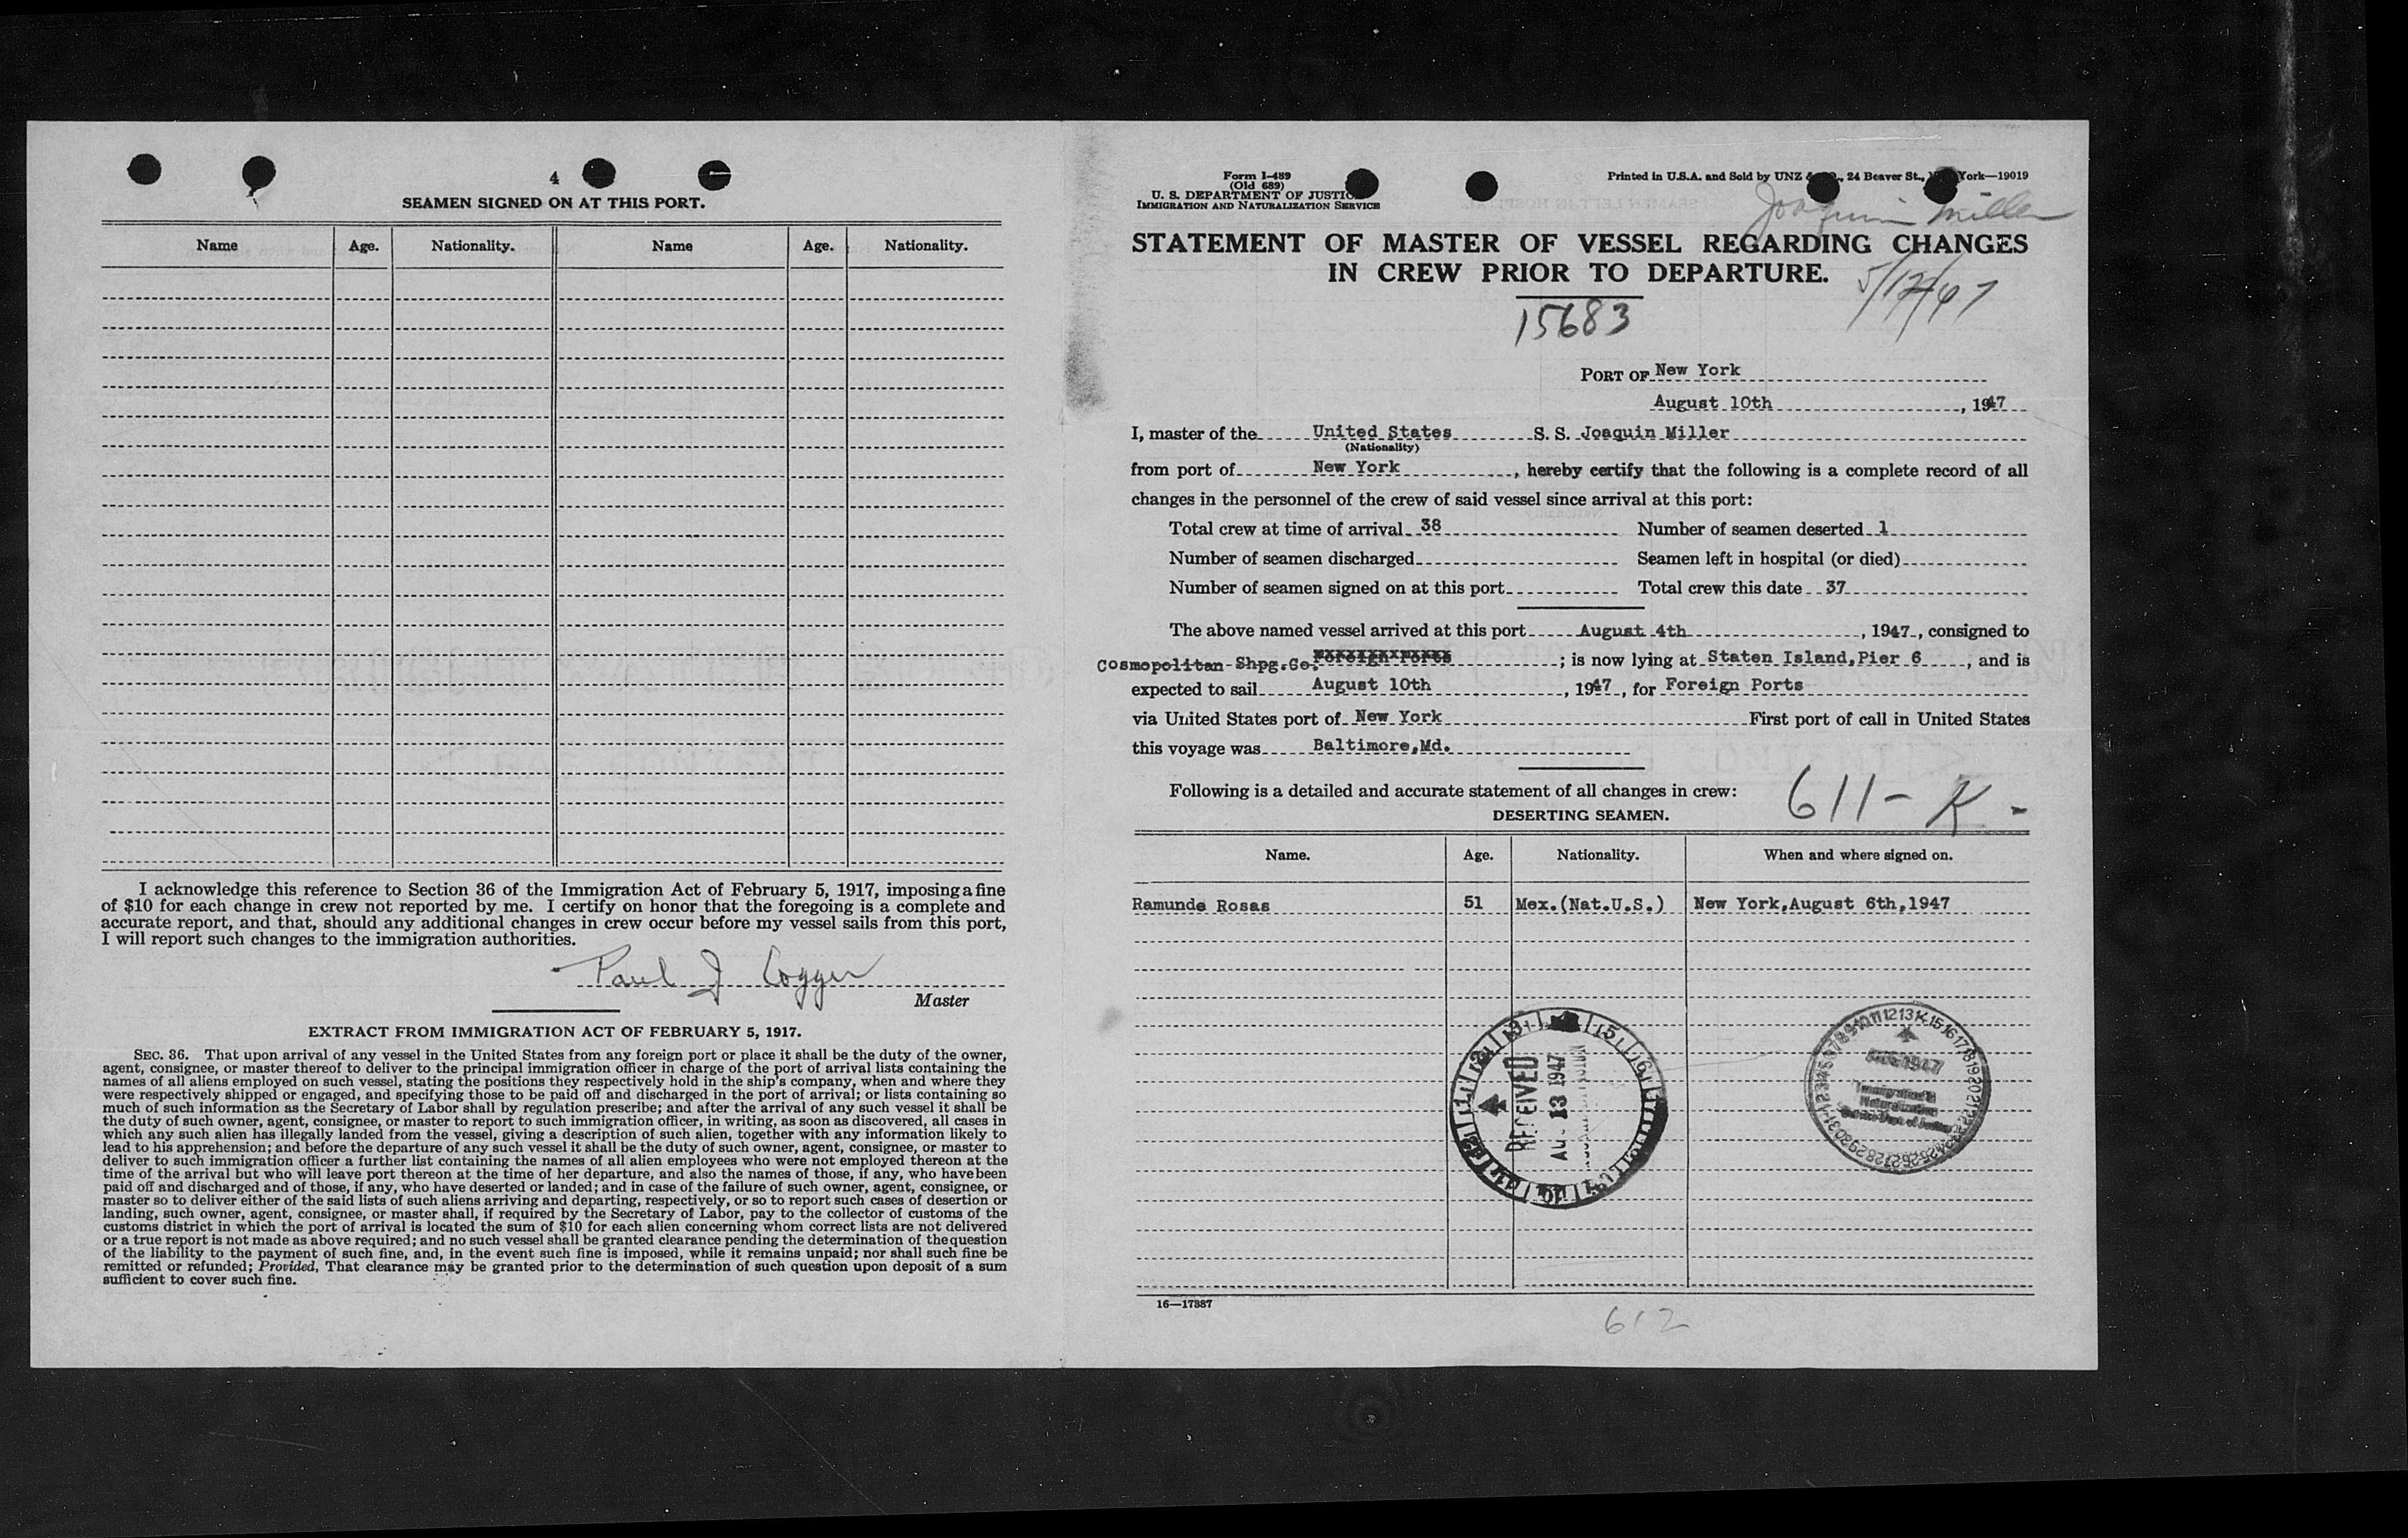 4
SEAMEN SIGNED ON AT THIS PORT.
Name Age. Nationality. Name Age. Nationality.
I acknowledge this reference to Section 36 of the Immigration Act of February 5, 1917, imposing a fine
of $10 for each change in crew not reported by me. I certify on honor that the foregoing is a complete and
accurate report, and that, should any additional changes in crew occur before my vessel sails from this port,
I will report such changes to the immigration authorities.
Paul J Cogger
Master
EXTRACT FROM IMMIGRATION ACT OF FEBRUARY 5, 1917.
SEC. 36. That upon arrival of any vessel in the United States from any foreign port or place it shall be the duty of the owner,
agent, consignee, or master thereof to deliver to the principal immigration officer in charge of the port of arrival lists containing the
names of all aliens employed on such vessel, stating the positions they respectively hold in the ship's company, when and where they
were respectively shipped or engaged, and specifying those to be paid off and discharged in the port of arrival; or lists containing so
much of such information as the Secretary of Labor shall by regulation prescribe; and after the arrival of any such vessel it shall be
the duty of such owner, agent, consignee, or master to report to such immigration officer, in writing, as soon as discovered, all cases in
which any such alien has illegally landed from the vessel, giving a description of such alien, together with any information likely to
lead to his apprehension; and before the departure of any such vessel it shall be the duty of such owner, agent, consignee, or master to
deliver to such immigration officer a further list containing the names of all alien employees who were not employed thereon at the
time of the arrival but who will leave port thereon at the time of her departure, and also the names of those, if any, who have been
paid off and discharged and of those, if any, who have deserted or landed; and in case of the failure of such owner, agent, consignee, or
master so to deliver either of the said lists of such aliens arriving and departing, respectively, or so to report such cases of desertion or
landing, such owner, agent, consignee, or master shall, if required by the Secretary of Labor, pay to the collector of customs of the
customs district in which the port of arrival is located the sum of $10 for each alien concerning whom correct lists are not delivered
or a true report is not made as above required; and no such vessel shall be granted clearance pending the determination of the question
of the liability to the payment of such fine, and, in the event such fine is imposed, while it remains unpaid; nor shall such fine be
remitted or refunded; Provided, That clearance may be granted prior to the determination of such question upon deposit of a sum
sufficient to cover such fine.
Form I-489
(Old 689)
U. S. DEPARTMENT OF JUSTICE
IMMIGRATION AND NATURALIZATION SERVICE
Printed in U.S.A. and Sold by UNZ & , 24 Beaver St., York—19019
Joaquin Miller
STATEMENT OF MASTER OF VESSEL REGARDING CHANGES
IN CREW PRIOR TO DEPARTURE.
15683
PORT OF New York
August 10th, 1947
I, master of the United States S. S. Joaquin Miller
(Nationality)
from port of New York, hereby certify that the following is a complete record of all
changes in the personnel of the crew of said vessel since arrival at this port:
Total crew at time of arrival 38 Number of seamen deserted 1
Number of seamen discharged Seamen left in hospital (or died)
Number of seamen signed on at this port Total crew this date 37
The above named vessel arrived at this port August 4th, 1947, consigned to
Cosmopolitan Shpg.Co. Foreign Ports; is now lying at Staten Island,Pier 6, and is
expected to sail August 10th, 1947, for Foreign Ports
via United States port of New York First port of call in United States
this voyage was Baltimore,Md.
Following is a detailed and accurate statement of all changes in crew:
611- K -
DESERTING SEAMEN.
Name. Age. Nationality. When and where signed on.
Ramunde Rosas 51 Mex.(Nat.U.S.) New York,August 6th,1947
RECEIVED
13 1947
Immigration &
Naturalization
16—17887
612